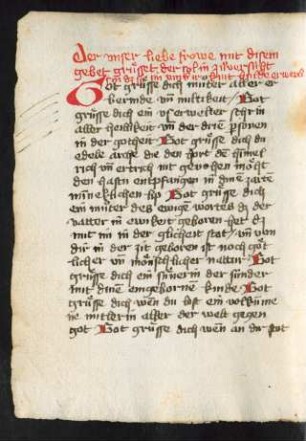 Der unser liebe frowe mit disem
gebet grüsset der sol in
Got grüsse dich muter aller er
bermde vn̄ miltikeit Got
grüsse dich ein userwelter schrin
aller heilikeit vn̄ der drier p̱sonen
in der gotheit Got grüsse dich du
edele arche die den hort de himel
rich vn̄ ertrich nit gemohen mocht
den hastu entpfangen in dine zarte
minneklichen lip Got grüsse dich
ein muter des ewige wortes dz der
vatter in ewikeit geboren het
mit im in der glicheit stat vn̄ von
dir in der zit geboren ist noch göt
licher vn̄ mönschlicher natur Got
grüsse dich ein sünerin der sünder
mit dinē eingebornē kinde Got
grüsse dich wen du bist ein volkūme
ne mitlerin aller der welt gegen
got Got grüsse dich wen an dir